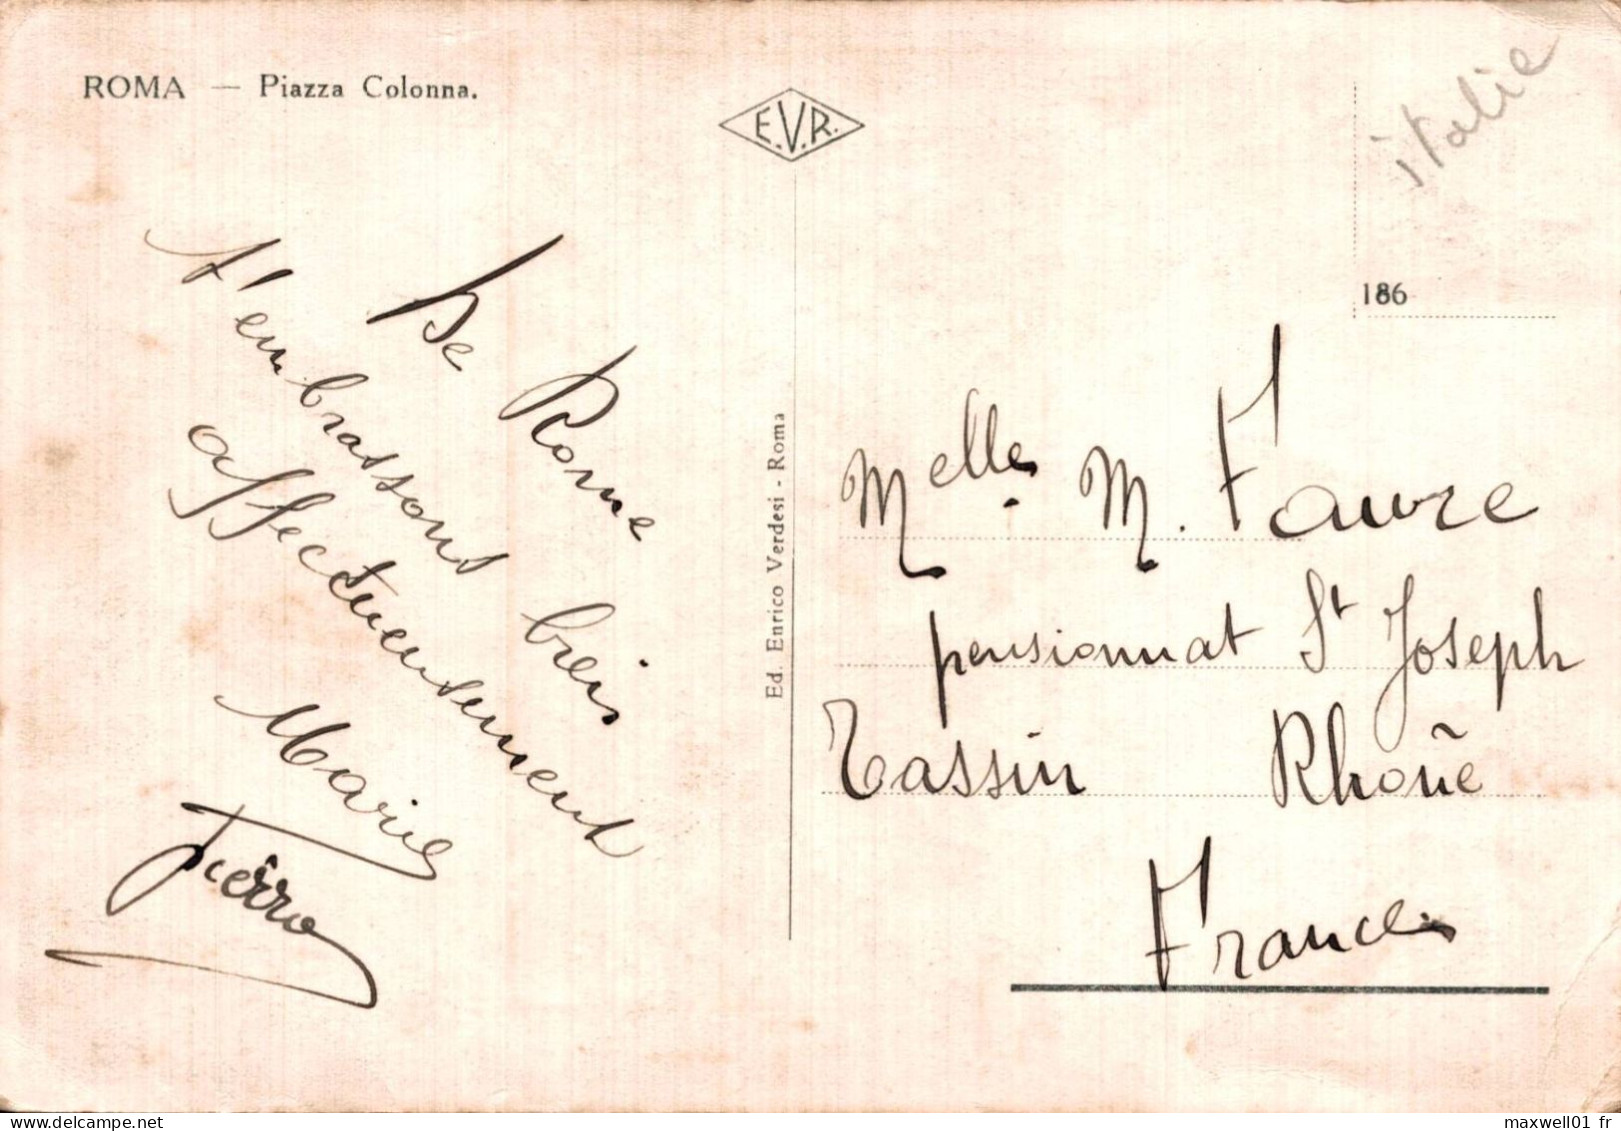 ROMA — Piazza Colonna.
E.V.R.
italie
186
De Rome
t'embrassons bien
affectueusement
Marie
Pierro
Ed. Enrico Verdesi - Roma
Melle M. Favre
pensionnat St Joseph
Tassin Rhône
France
maxwell01 fr